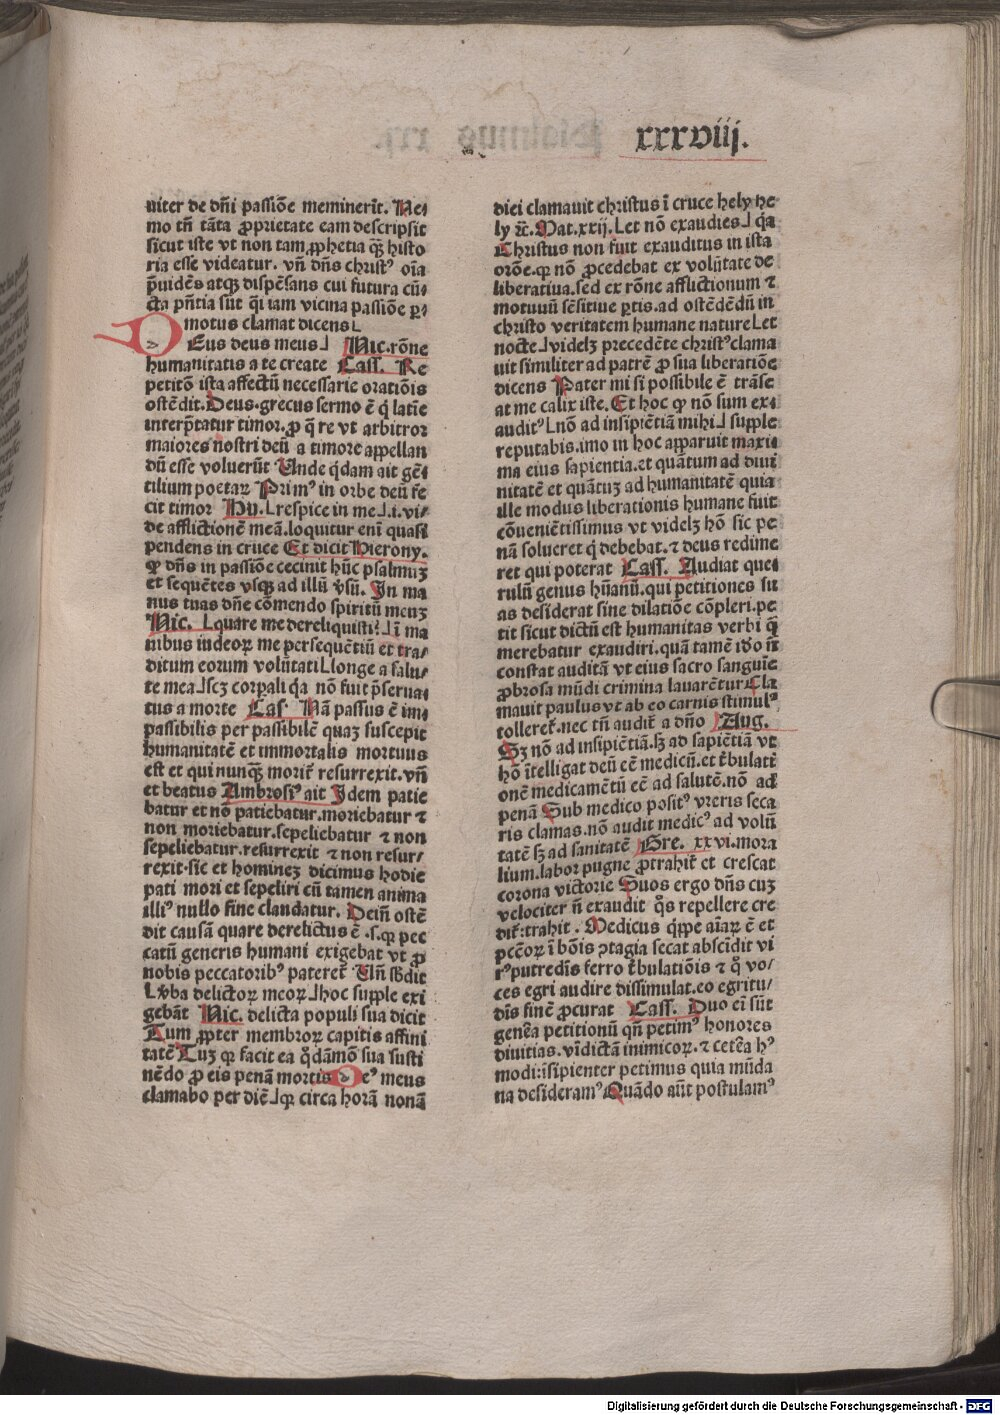 xxxviij.
uiter de dn̄i passiōe meminerīt. Ne⸗
mo tn̄ tāta ꝓprietate eam descripsit
sicut iste vt non tam ꝓphetia qȝ̄ histo
ria esse videatur. vn̄ dn̄s christꝰ oīa
p̄uidēs atqȝ dispēsans cui futura cū⸗
cta pn̄tia sūt q̄i iam vicina passiōe ꝑ⸗
motus clamat dicens⌊
Eus deus meus⌋ Nic. rōne
humanitatis a te create Cass. Re
petitō ista affectū necessarie oratiōis
ostēdit. Deus. grecus sermo ē q̇ latīe
interp̄tatur timor. ꝓ q̇ re vt arbitror
maiores nostri deū a timore appellan
dū esse voluerūt Unde q̇dam ait gē⸗
tilium poetaꝝ Primꝰ in orbe deū fe
cit timor Hu. ⌊respice in me⌋ .i. vi⸗
de afflictionē meā. loquitur enī quasi
pendens in cruce Et dicit Hierony.
ꝙ dn̄s in passiōe cecinit hūc psalmuȝ
et sequētes vsqȝ ad illū v̄sū. In ma
nus tuas dn̄e cōmendo spiritū meuȝ
Nic. ⌊quare me dereliquisti?⌋ ī ma
nibus iudeoꝝ me persequētiū et tra⸗
ditum eorum volūtati ⌊longe a salu⸗
te mea⌋ scȝ corꝑali q̇a nō fuit p̄serua⸗
tus a morte Cas̄ Nā passus ē im⸗
passibilis per passibilē quaȝ suscepit
humanitatē et immortalis mortuus
est et qui nunqȝ̄ morit᷑ resurrexit. vn̄
et beatus Ambrosiꝰ ait Idem patie
batur et nō patiebatur. moriebatur ⁊
non moriebatur. sepeliebatur ⁊ non
sepeliebatur. resurrexit ⁊ non resur⸗
rexit. sic et homineȝ dicimus hodie
pati mori et sepeliri cū tamen anima
illiꝰ nullo fine claudatur. Dein̄ ostē
dit causā quare derelictus ē .s. ꝙ pec
catū generis humani exigebat vt ꝓ
nobis peccatoribꝰ pateret᷑ Un̄ sb̄dit
⌊v̄ba delictoꝝ meoꝝ⌋ hoc supple exi
gebāt Nic. delicta populi sua dicit
Tum ꝓpter membroꝝ capitis affini
tatē Tuȝ ꝙ facit ea q̇dāmō sua susti
nēdo ꝓ eis penā mortis Deꝰ meus
clamabo per diē⌋ ꝙ circa horā nonā
diei clamauit christus ī cruce hely he
ly ⁊c̄. Mat. xxij. ⌊et nō exaudies⌋ q̇a
Christus non fuit exauditus in ista
orōe. ꝙ nō ꝓcedebat ex volūtate de
liberatiua. sed ex rōne afflictionum ⁊
motuum sēsitiue ꝑtis. ad ostēdēdū in
christo veritatem humane nature ⌊et
nocte⌋ videlȝ precedēte christꝰ clama
uit similiter ad patrē ꝓ sua liberatiōe
dicens Pater mi si possibile ē trāse
at me calix iste. Et hoc ꝙ nō sum ex⸗
auditꝰ ⌊nō ad insipiētiā mihi⌋ supple
reputabis. imo in hoc apparuit maxi
ma eius sapientia. et quātum ad diui
nitatē et quātuȝ ad humanitatē quia
ille modus liberationis humane fuit
cōueniētissimus vt videlȝ hō sic pe
nā solueret q̇ debebat. ⁊ deus redime
ret qui poterat Cass. Audiat que⸗
rulū genus hūanū. qui petitiones su
as desiderat sine dilatiōe cōpleri. pe
tit sicut dictū est humanitas verbi q̄
merebatur exaudiri. quā tamē idō n̄
constat auditā vt eius sacro sanguīe
ꝓbrosa mūdi crimina lauarētur Cla
mauit paulus vt ab eo carnis stimulꝰ
tolleret᷑. nec tn̄ audit᷑ a dn̄o Aug.
Sȝ nō ad insipiētiā. sȝ ad sapiētiā vt
hō ītelligat deū eē medicū. et t᷑bulati
onē medicamētū eē ad salutē. nō ad
penā Sub medico positꝰ vreris seca
ris clamas. nō audit medicꝰ ad volū
tatē sȝ ad sanitatē Gre. xxvi. mora
lium. labor pugne ꝓtrahit᷑ et crescat
corona victorie Suos ergo dn̄s cuȝ
velociter n̄ exaudit q̇s repellere cre
dit᷑: trahit. Medicus q̇ppe aīaꝝ ē et
pccōꝝ ī bōis ꝯtagia secat abscīdit vi
rꝰ putredīs ferro t᷑bulatiōis ⁊ q̇ vo⸗
ces egri audire dissimulat. eo egritu⸗
dīs finē ꝓcurat Cass. Duo eī sūt
genēa petitionū qn̄ petimꝰ honores
diuitias. vīdictā inimicoꝝ. ⁊ cetēa hꝰ
modi: īsipienter petimus quia mūda
na desideramꝰ Quādo aūt postulamꝰ
Digitalisierung gefördert durch die Deutsche Forschungsgemeinschaft - DFG